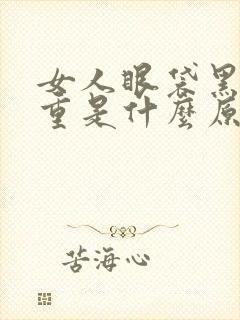 女人眼袋黑
重是什麼原
苦海心